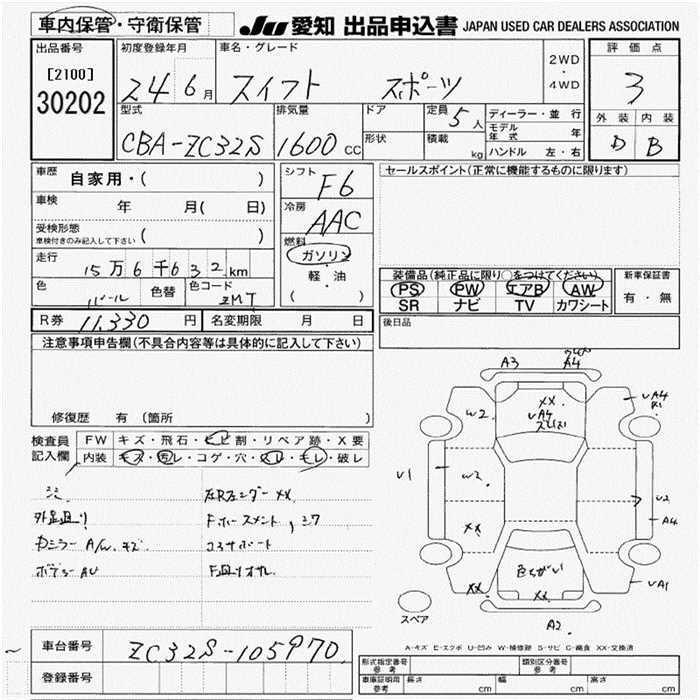 車内保管・守衛保管 JU 愛知 出品申込書 JAPAN USED CAR DEALERS ASSOCIATION
出品番号 初度登録年月 車名・グレード 2WD・4WD 評価点
[2100] 30202 24 6月 スイフト スポーツ 3
型式 排気量 ドア 定員 5人 ディーラー・並行 外装 内装
CBA-ZC32S 1600cc 形状 積載 kg モデル年式 年 D B
ハンドル 左・右
車歴 自家用・( ) シフト F6 セールスポイント(正常に機能するものに限ります)
車検 年 月( 日) 冷房 AAC
受検形態 車検付きのみ記入して下さい ( ) 燃料 ガソリン
走行 15万6千632km 軽・油 装備品(純正品に限り○をつけてください) 新車保証書
色 パール 色替 色コード ZMT ( ) PS PW エアB AW 有・無
SR ナビ TV カワシート
R券 11,330円 名変期限 月 日 後日品
注意事項申告欄(不具合内容等は具体的に記入して下さい)
修復歴 有(箇所 )
検査員記入欄 FW キズ・飛石・ヒビ割・リペア跡・X要
内装 キズ・汚レ・コゲ・穴・スレ・モレ・破レ
外足廻り
Dミラー A/W キズ
コアサポート
A3 A4
XX UA4
W2 UA4
U1 W2 U2
XX A4
色ちがい UA1
XX XX
スペア A2
A-キズ E-エクボ U-凹み W-補修跡 S-サビ C-腐食 XX-交換済
車台番号 ZC32S-105970
登録番号
形式指定番号 参考 類別区分番号 参考
車庫証明用 参考 長さ cm 幅 cm 高さ cm